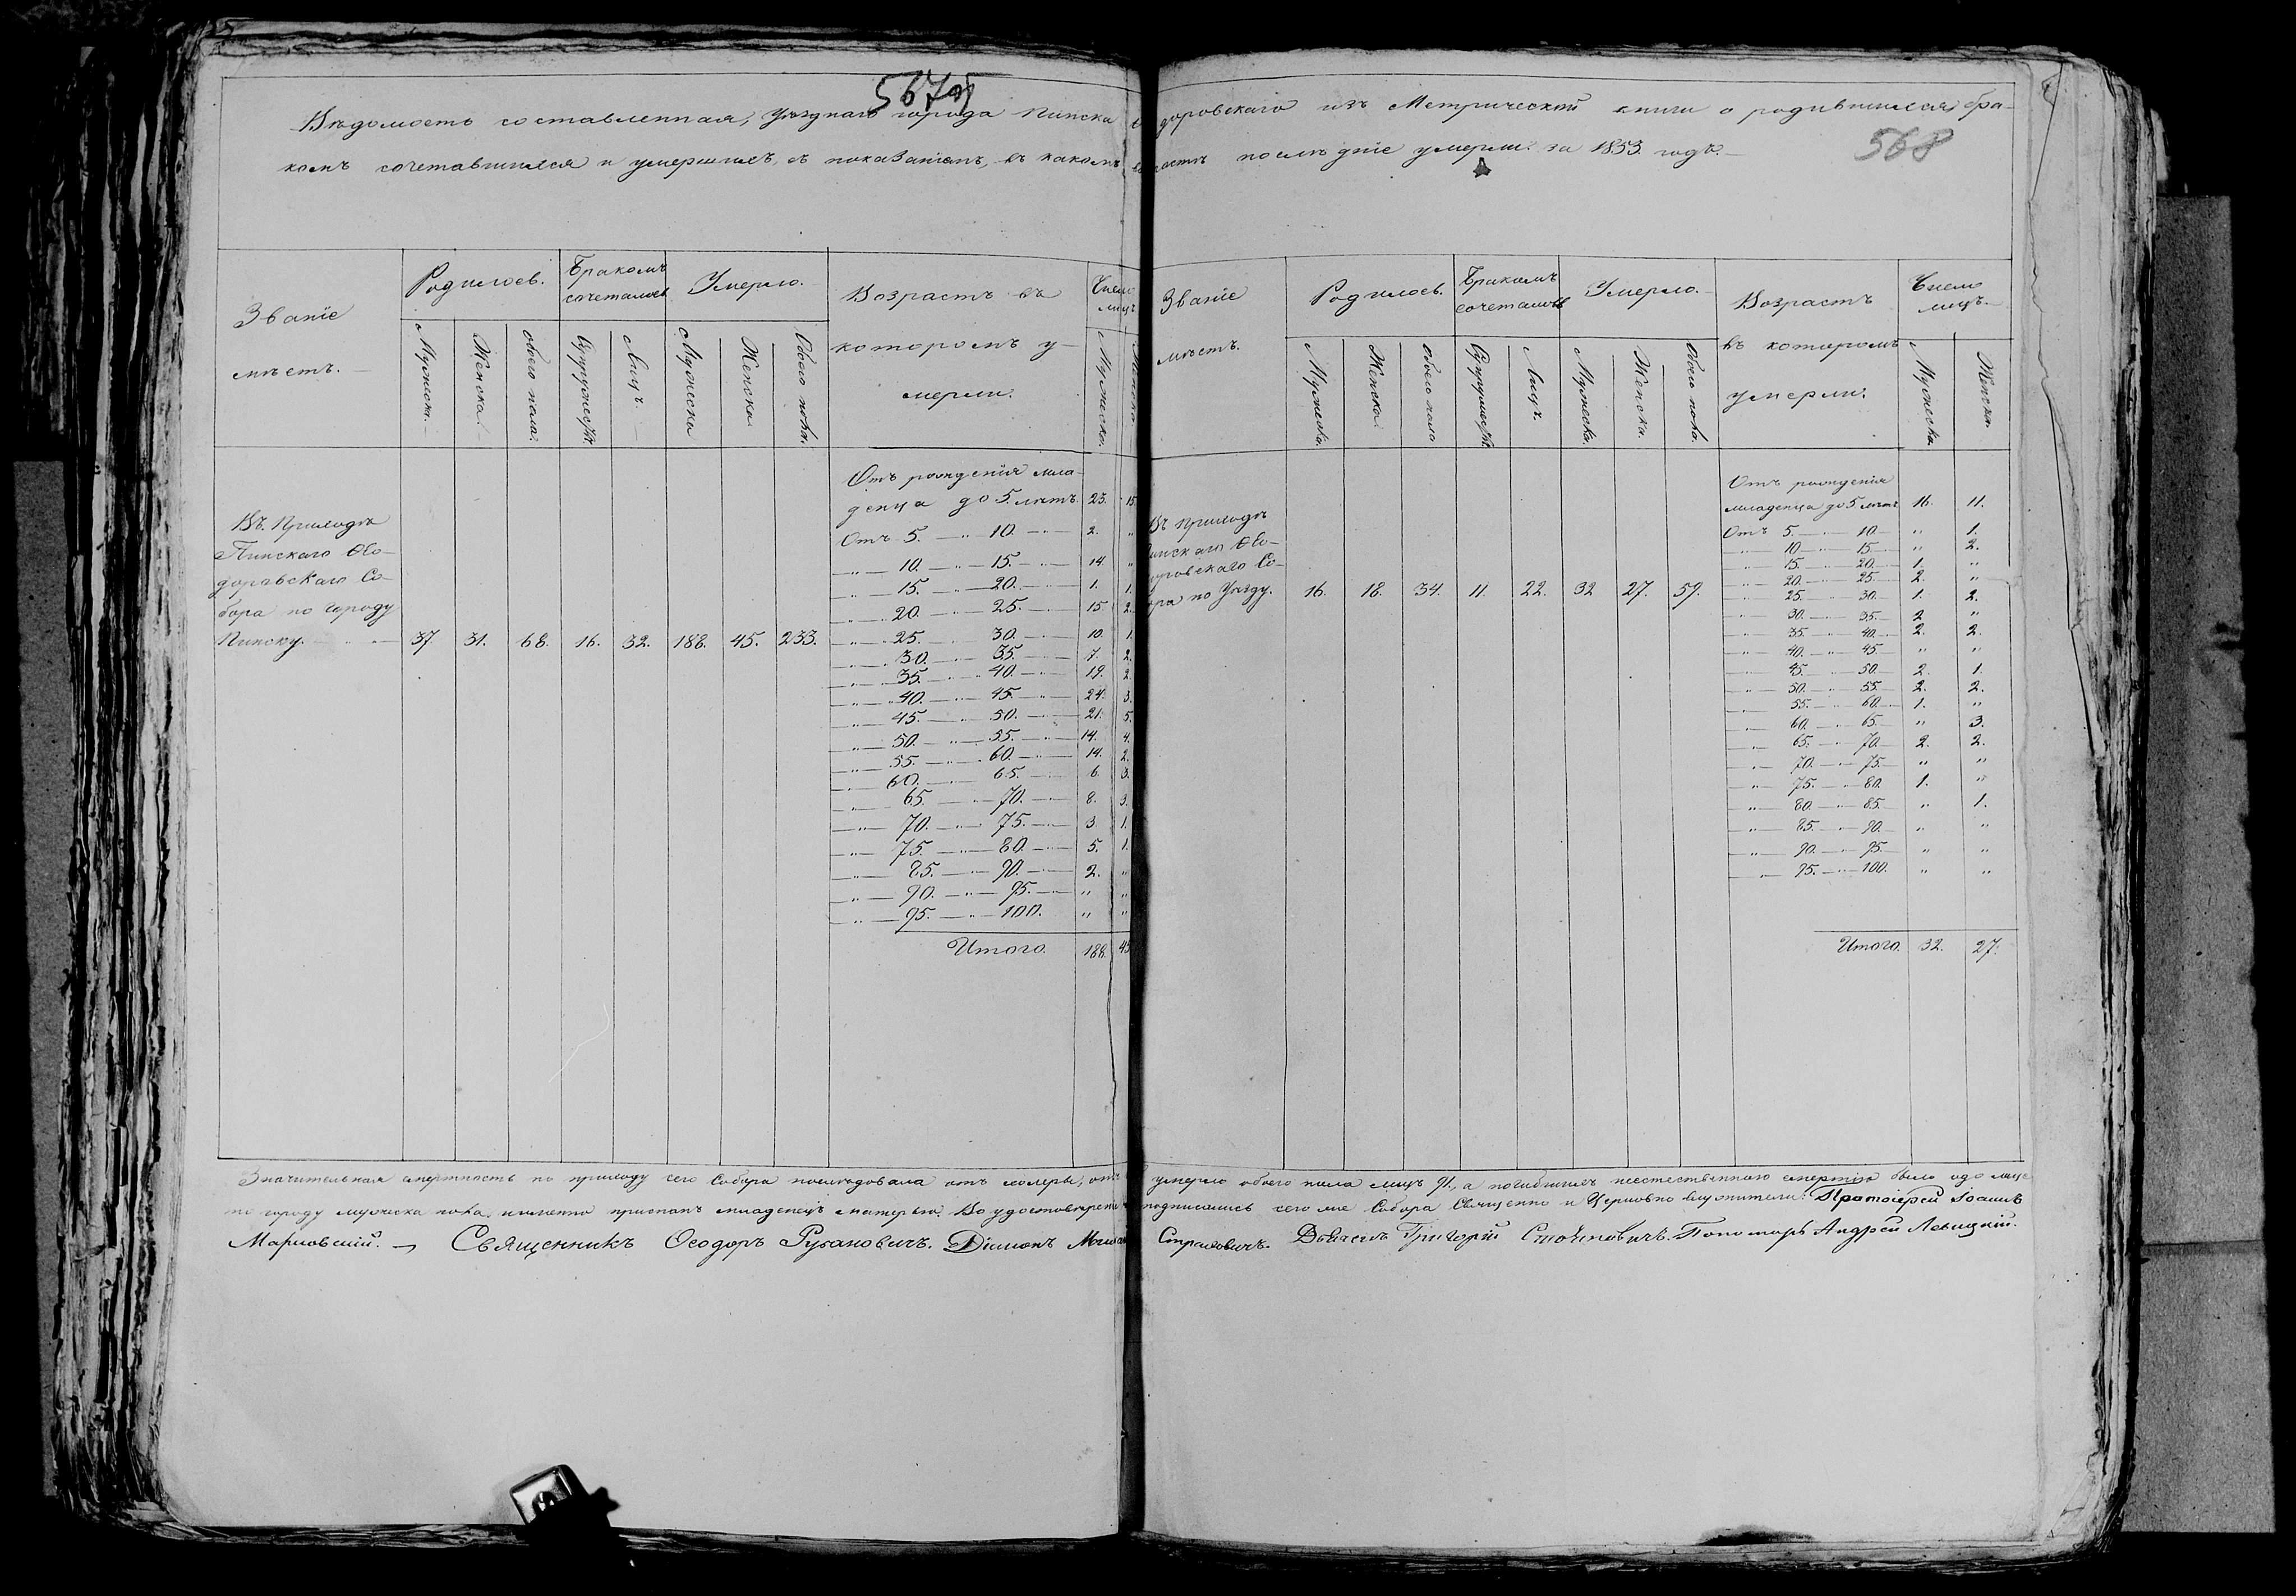 567об
Вѣдомость составленная, Уѣзднаго города Пинска Ѳе доровскаго изъ Метрической книги о родившихся, бра-
568
комъ сочетавшихся и умершихъ, съ показаніемъ, въ какомъ возрастѣ послѣдніе умерли. за 1853 годъ.
Званіе мѣстъ.
Родилось.
Бракомъ сочеталось
Умерло.
Возрастъ въ которомъ у-мерли.
Число лицъ
Мужеска. Женска. Обоего пола. Супружест. Лицъ. Мужеска Женска Обоего пола. Мужеска. Женска.
Отъ рожденія мла-
денца до 5. лѣтъ. 23. 15.
Въ Приходѣ
Пинскаго Ѳео-
доровскаго Со-
бора по городу
Пинску. 37. 31. 68. 16. 32. 188. 45. 233.
Отъ 5. — " 10. — " 2. "
" — 10. — " — 15. 14. "
" — 15. — " — 20. 1. 1.
" — 20. — " — 25. 15. 2.
" — 25. — " — 30. 10. 1.
" — 30. — " — 35. 7. 2.
" — 35. — " — 40. 19. 2.
" — 40. — " — 45. 24. 3.
" — 45. — " — 50. 21. 5.
" — 50. — " — 55. 14. 4.
" — 55. — " — 60. 14. 2.
" — 60. — " — 65. 6. 3.
" — 65. — " — 70. 8. 3.
" — 70. — " — 75. 3. 1.
" — 75. — " — 80. 5. 1.
" — 85. — " — 90. 2. "
" — 90. — " — 95. " "
" — 95. — " — 100. " "
Итого. 188. 45
Званіе мѣстъ.
Родилось.
Бракомъ сочеталось
Умерло.
Возрастъ въ которомъ умерли.
Число лицъ.
Мужеска. Женска. Обоего пола Супружест. Лицъ. Мужеска. Женска. Обоего пола. Мужеска. Женска.
Отъ рожденія
младенца до 5 лѣтъ 16. 11.
Въ Приходѣ
Пинскаго Ѳео-
доровскаго Со-
бора по Уѣзду. 16. 18. 34. 11. 22. 32 27. 59.
Отъ 5. — 10. " 1.
" — 10 — " 15. " 2.
" — 15. — " 20. 1. "
" — 20. — " 25 2. "
" — 25. — " 30. 1. 2.
" — 30. — " 35. 2 "
" — 35. — " 40. 2. 2.
" — 40. — " 45. " "
" — 45. — " 50. 2. 1.
" — 50. — " 55. 2. 2.
" — 55. — " 60. 1. "
" — 60. — " 65. " 3.
" — 65. — " 70. 2. 2.
" — 70. — " 75. " "
" — 75. — " 80. 1. "
" — 80. — " 85. " 1.
" — 85. — " 90. " "
" — 90. — " 95. " "
" — 95. — " 100. " "
Итого. 32. 27.
Значительная смертность по приходу сего Собора послѣдовала отъ холеры, отъ умерло обоего пола лицъ 91., а погибшихъ неестественною смертію было одо лице
по городу мужеска пола, именно приспанъ младенецъ матерью. Во удостовѣреніе подписались сего же Собора Священно и Церковно служители: Протоіерей Іоаннъ
Марновскій. — Священникъ Ѳеодоръ Русановичъ. Діаконъ Страховичъ. Дьячекъ Григорій Споченовичъ. Пономарь Андрей Левицкій.